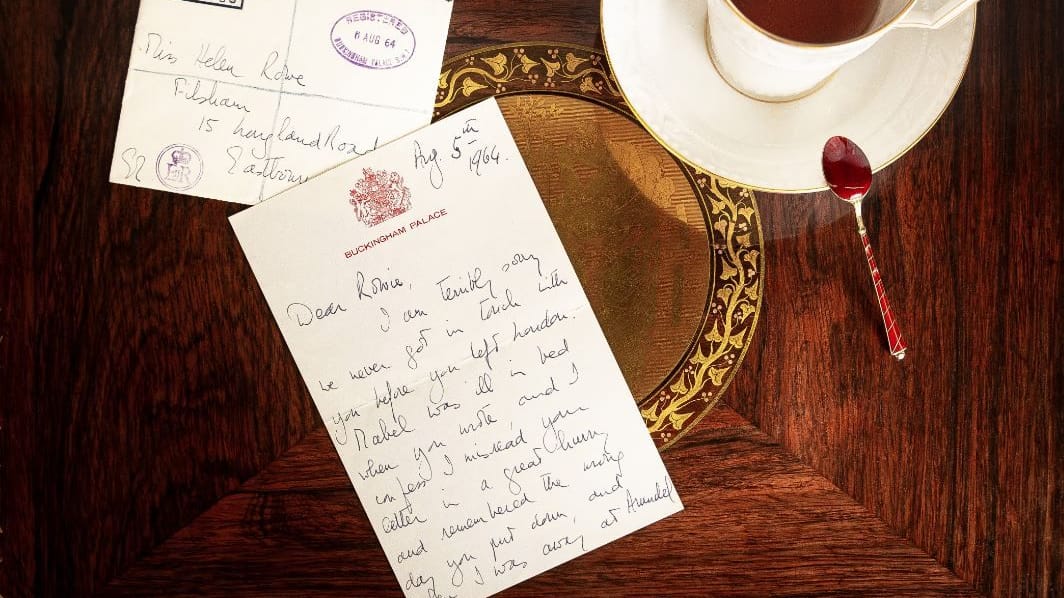 REGISTERED
AUG 64
BUCKINGHAM PALACE S.W.1
Miss Helen Rowe
Filsham
15 Road
Eastbourne
ER
Aug. 5th
1964.
BUCKINGHAM PALACE
Dear Rowie,
I am terribly sorry
we never got in touch with
you before you left London.
Mabel was ill in bed
when you wrote, and I
confess I misread your
letter in a great hurry
and remembered the wrong
day you put down, and
I was away at Arundel